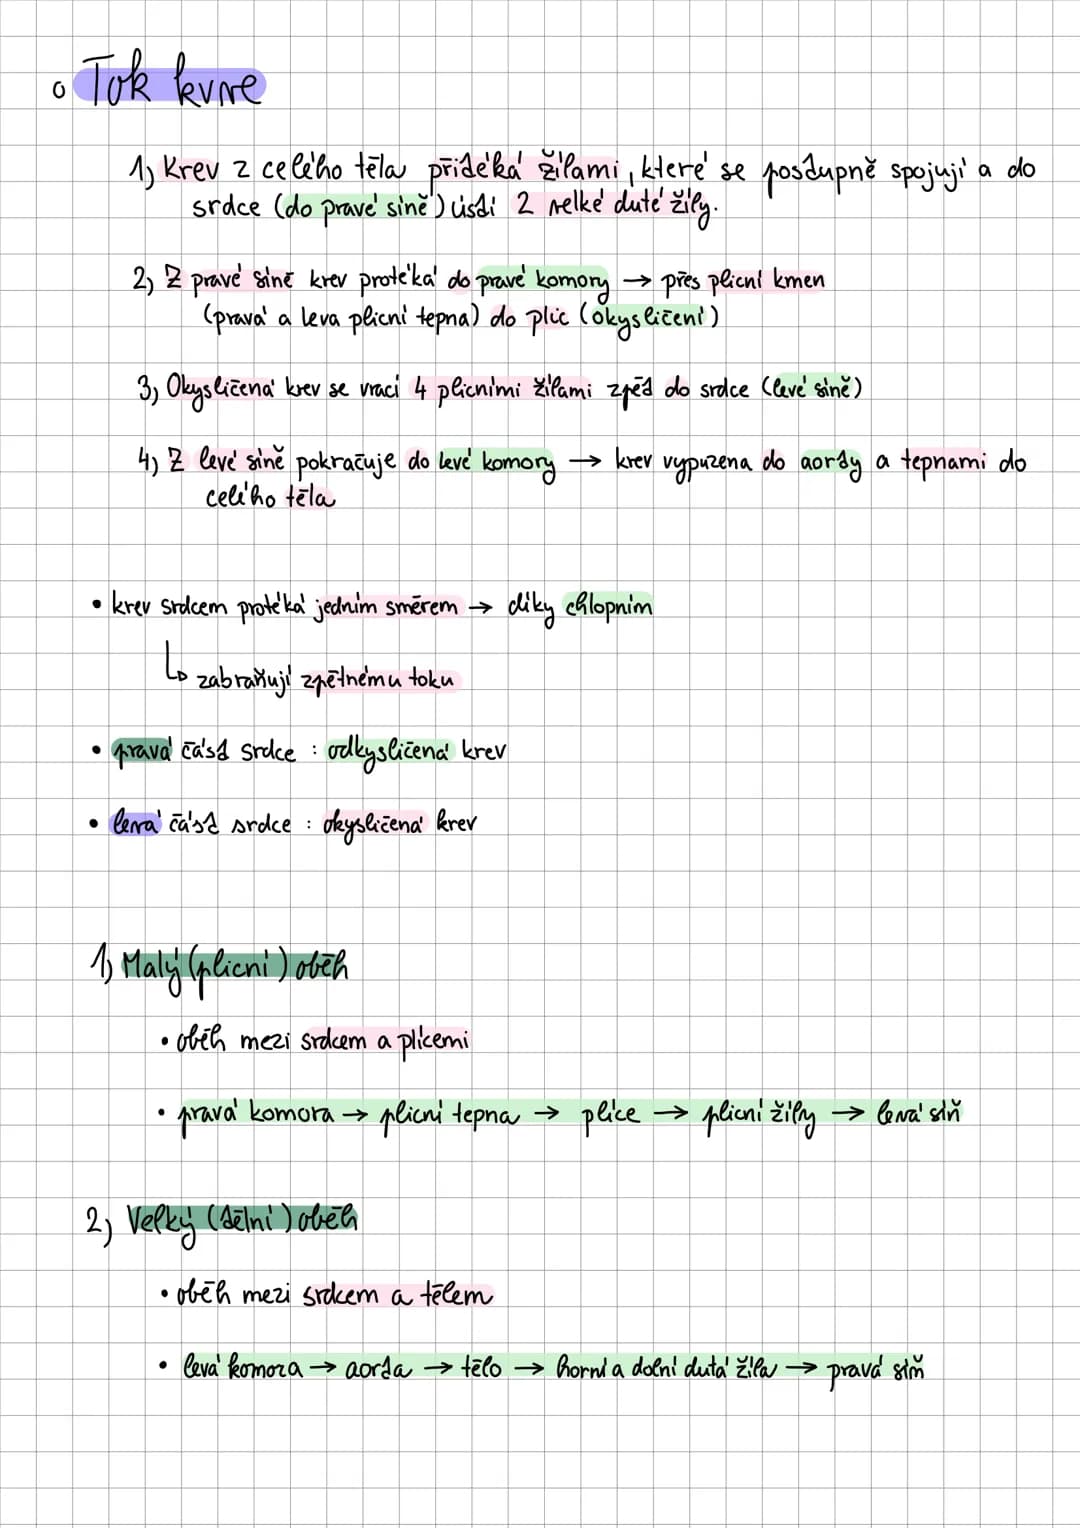 Tok krve
1) Krev z celého těla přitéká žilami, které se postupně spojují a do
srdce (do pravé síně) ústí 2 velké duté žíly.
2) Z pravé síně krev protéká do pravé komory → přes plicní kmen
(pravá a leva plicní tepna) do plic (okysličení)
3) Okysličená krev se vrací 4 plicními žilami zpět do srdce (levé síně)
4) Z levé síně pokračuje do levé komory → krev vypuzena do aorty a tepnami do
celého těla
• krev srdcem protéká jedním směrem → díky chlopním
↳ zabraňují zpětnému toku
• pravá část srdce : odkysličená krev
• levá část srdce : okysličená krev
1) Malý (plicní) oběh
• oběh mezi srdcem a plícemi
• pravá komora → plicní tepna → plíce → plicní žíly → levá síň
2) Velký (tělní) oběh
• oběh mezi srdcem a tělem
• levá komora → aorta → tělo → horní a dolní dutá žíla → pravá síň